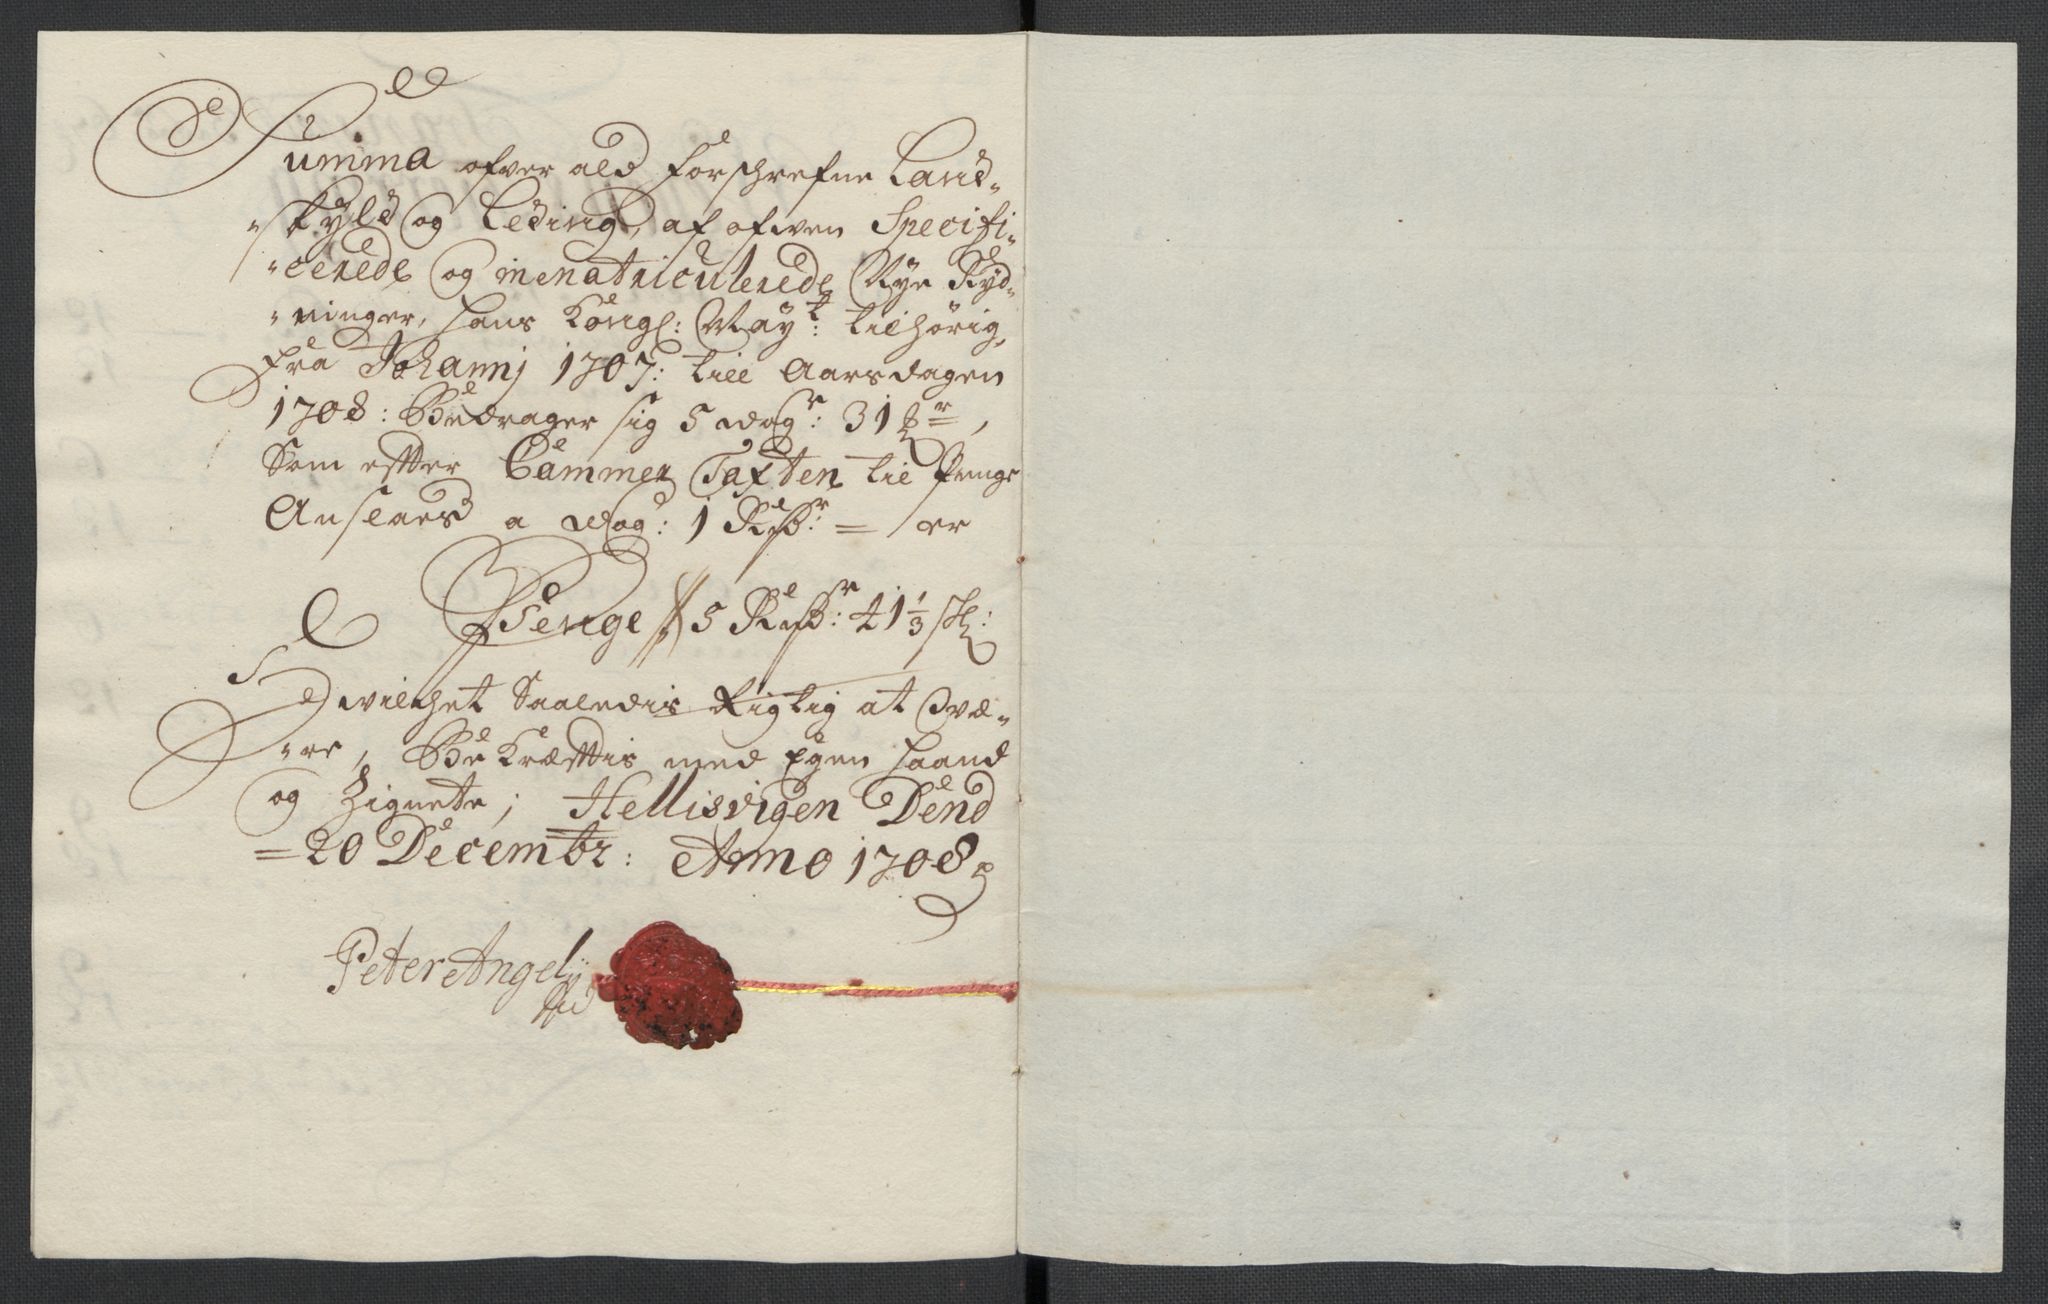 Summa ofver ald forschrefne Land-
-skyld og Leding, af ofwen Specifi-
-cerede og inmatriculerede Nye Ryd-
-ninger, hans Kongl: Mayt: tilhörig,
fra Johannj 1707: till Aarsdagen
1708: Bedrager sig 5 wogr: 31 ℔r,
Som efter Cammer Taxten til Penge
Anslaed a wog: 1 Rdr: = er
Penge // 5 Rdr: 41 1/3 sk:
Dwilchet Saaledis Rigtig at Væ-
-re, Bekræfftis med Egen haand
og Zignete; Hellisvigen Dend
=20 Decembr: Anno 1708
Peter Angel